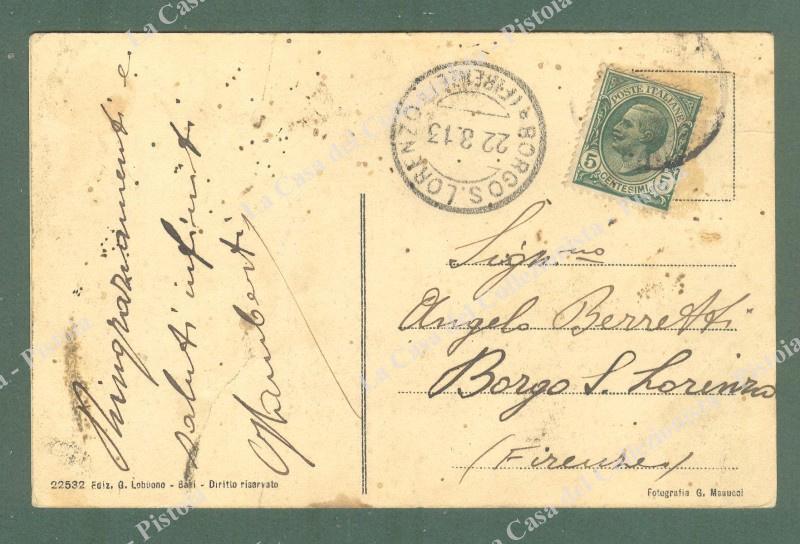 Ringraziamenti e
saluti infiniti
22532 Ediz. G. Lobuono - Bari - Diritto riservato
BORGO S. LORENZO
(FIRENZE)
22 8.13
POSTE ITALIANE
5 5
CENTESIMI
Sigr.no
Angelo Berretti
Borgo S. Lorenzo
(Firenze)
Fotografia G.
La Casa del Collezionista - Pistoia